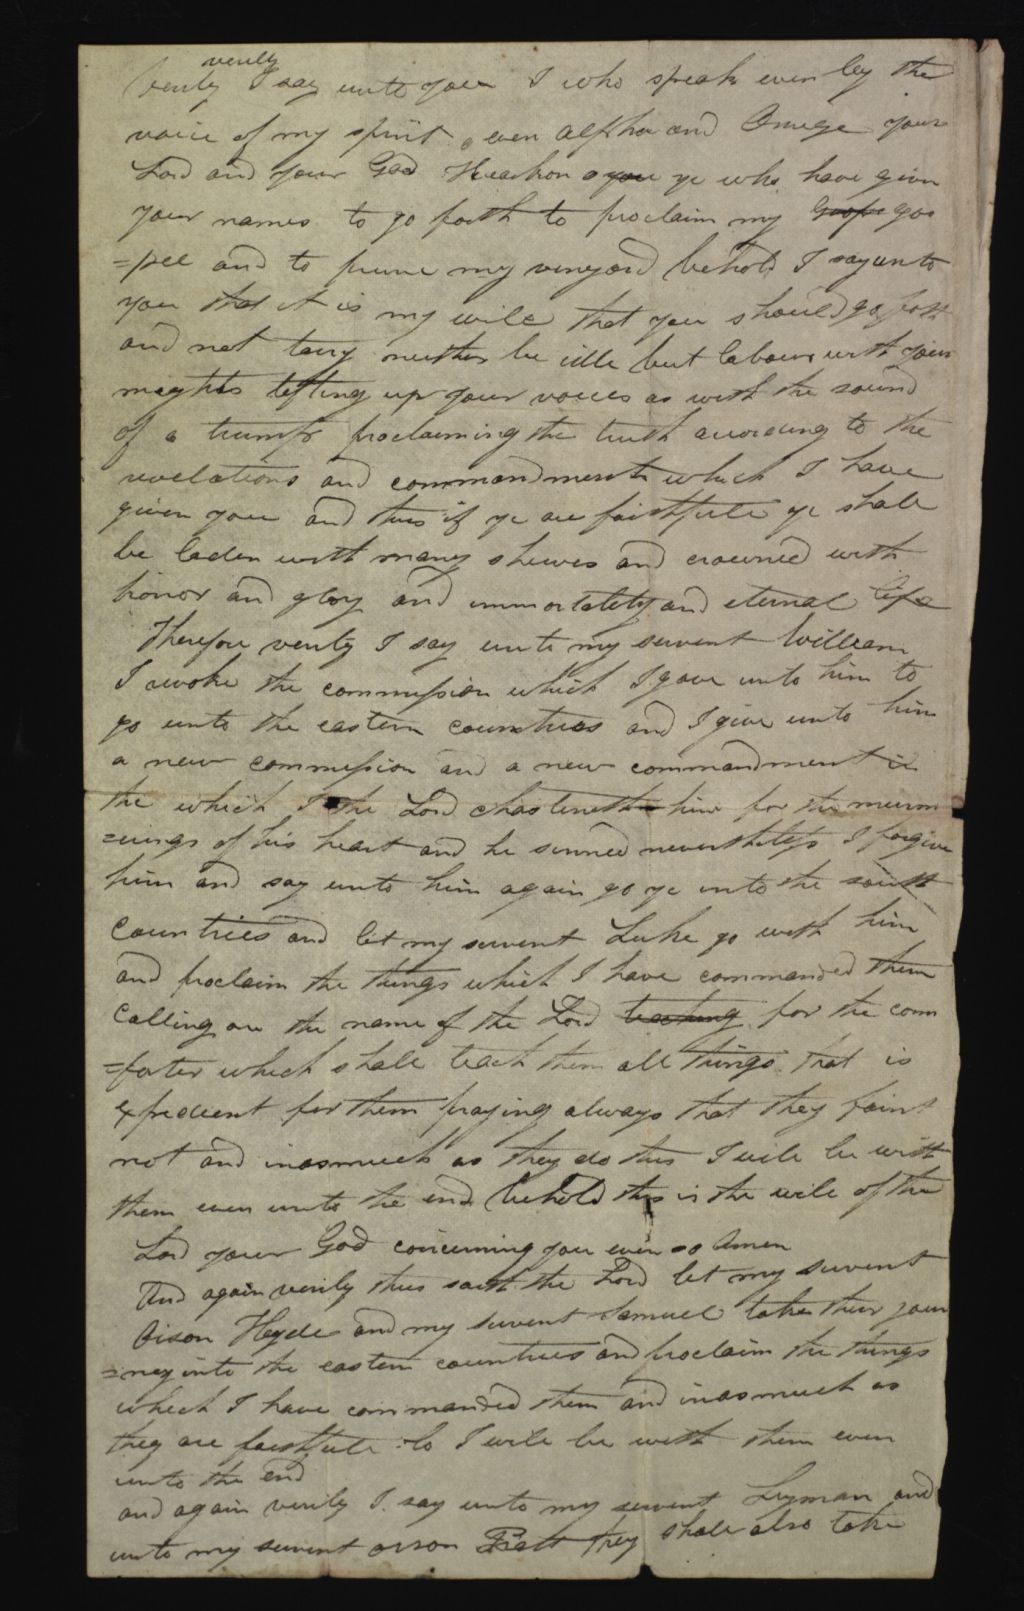 verily
Verily I say unto you I who speak even by the
voice of my spirit even alpha and Omega your
Lord and your God Hearken o you ye who have given
your names to go forth to proclaim my Gospe gos
=pel and to prune my vineyard behold I say unto
you that it is my will that you should go forth
and not tarry neither be idle but labour with your
mights lifting up your voices as with the sound
of a trump proclaiming the truth according to the
revelations and commandments which I have
given you and thus if ye are faithfull ye shall
be laden with many sheves and crowned with
honor and glory and immortality and eternal life
Therefore verily I say unto my servent William
I revoke the commission which I gave unto him to
go unto the eastern countries and I give unto him
a new commission and a new commandment in
the which I the Lord chasteneth him for the murm
=urings of his heart and he sinned nevertheless I forgive
him and say unto him again go ye into the south
countries and let my servent Luke go with him
and proclaim the things which I have commanded them
calling on the name of the Lord teaching for the com
=forter which shall teach them all things that is
expedient for them praying always that they faint
not and inasmuch as they do this I will be with
them even unto the end behold this is the will of the
Lord your God concerning you even so Amen
And again verily thus saith the Lord let my servent
Orson Hyde and my servent Samuel take their jour
=ney into the eastern countries and proclaim the things
which I have commanded them and inasmuch as
they are faithfull lo I will be with them even
unto the end
and again verily I say unto my servent Lyman and
unto my servent orson Pratt they shall also take